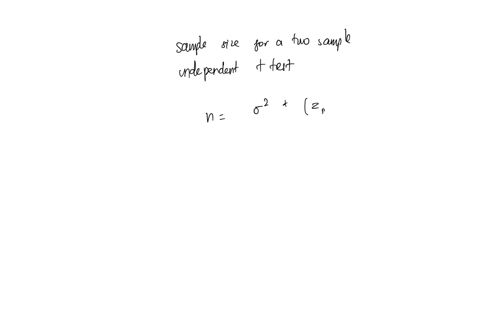 sample size for a two sample
independent t test
n = σ² + (z₁